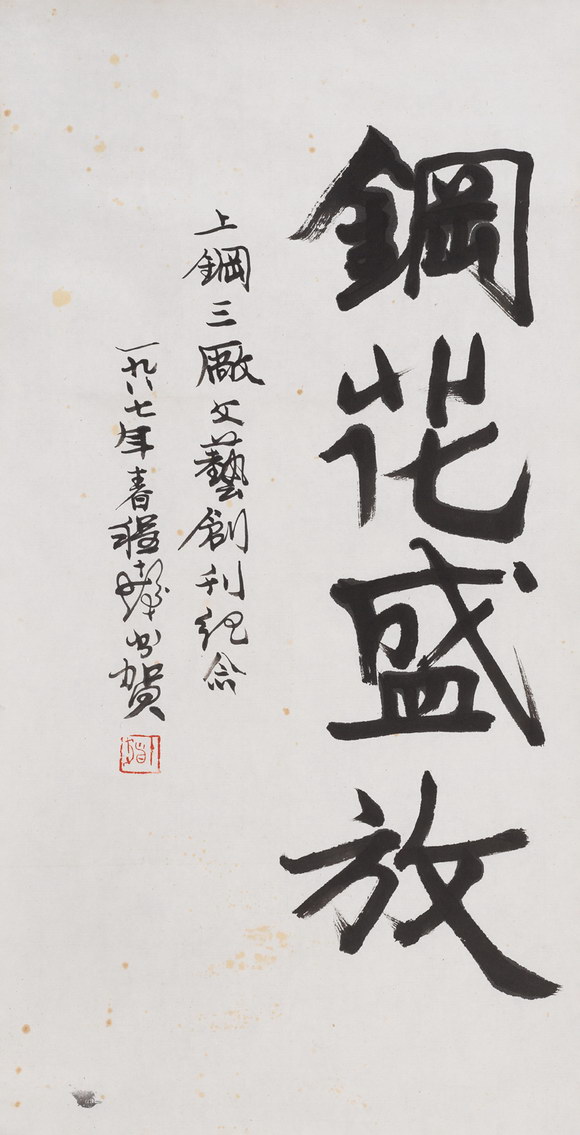 鋼花盛放
上鋼三厰文藝創刊紀念
一九八七年春程十髮書賀